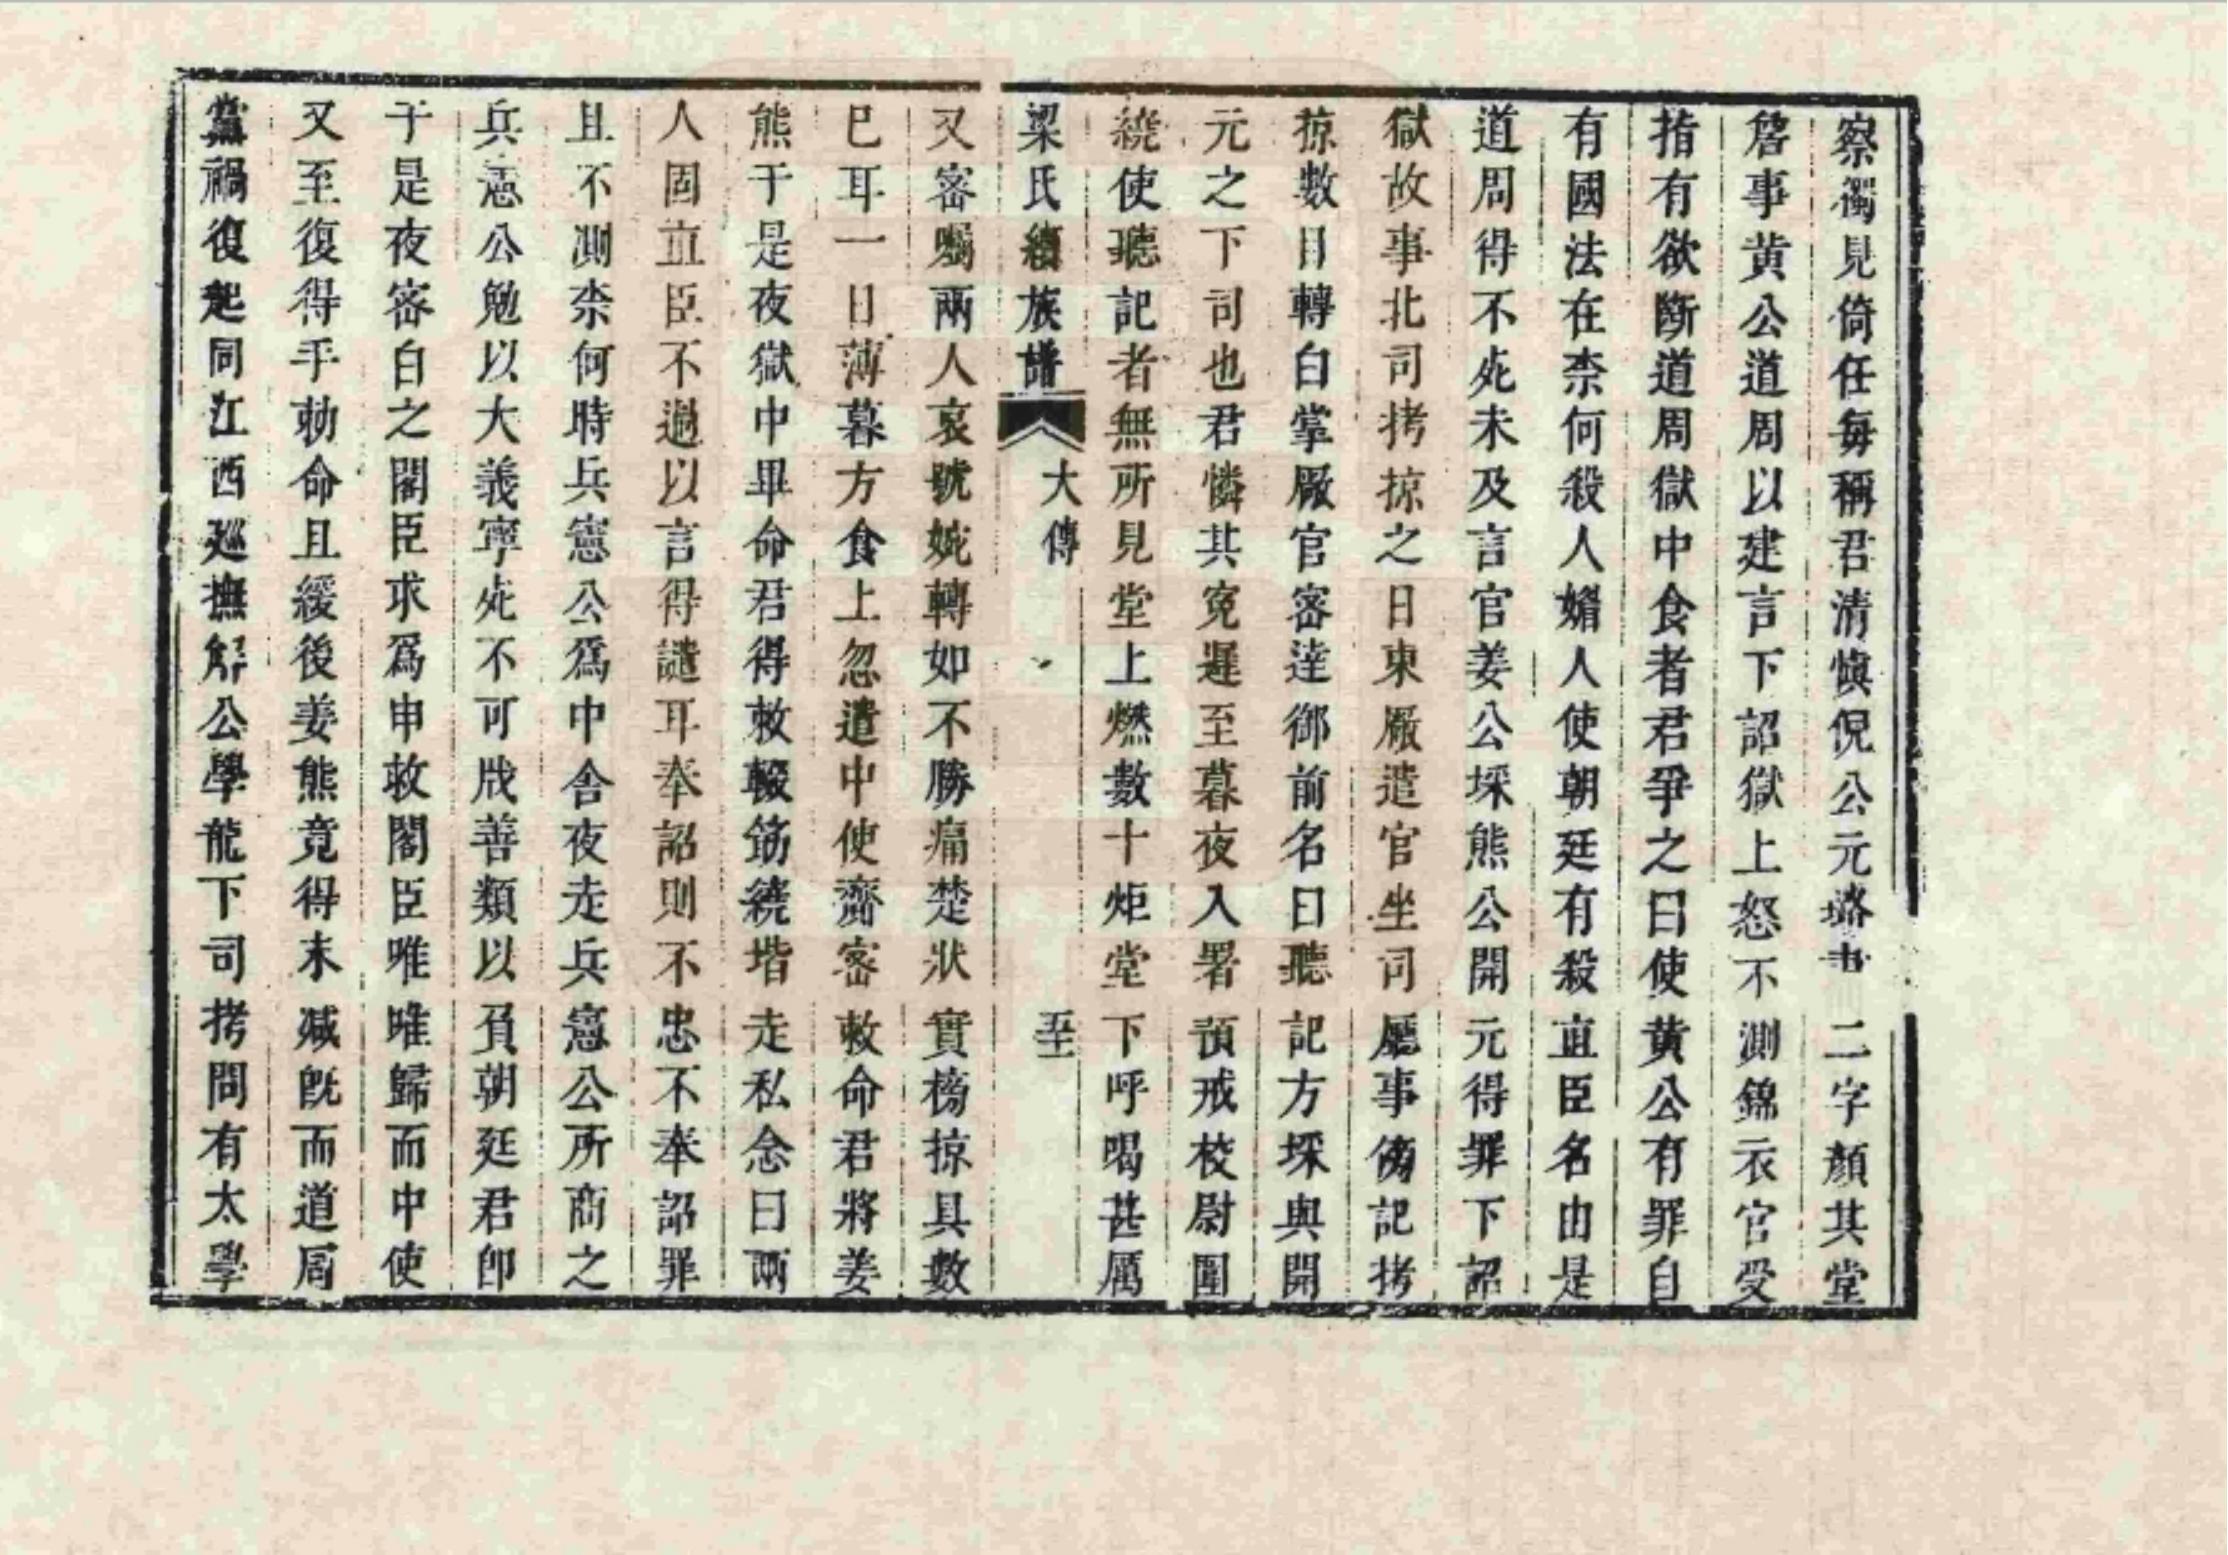 察獨見倚任每稱君清慎倪公元璐書二字顏其堂
詹事黃公道周以建言下詔獄上怒不測錦衣官受
指有欲斷道周獄中食者君爭之曰使黃公有罪自
有國法在柰何殺人媚人使朝廷有殺直臣名由是
道周得不死未及言官姜公埰熊公開元得罪下詔
獄故事北司拷掠之日東厰遣官坐司廳事傍記拷
掠數目轉白掌厰官密達御前名曰聽記方埰與開
元之下司也君憐其寃遲至暮夜入署預戒校尉圍
繞使聽記者無所見堂上燃數十炬堂下呼喝甚厲
梁氏續族譜 大傳 至
又密囑兩人哀號婉轉如不勝痛楚狀實榜掠具數
巳耳一日薄暮方食上忽遣中使齎密敕命君將姜
熊于是夜獄中畢命君得敕輟筯繞堦走私念曰兩
人固直臣不過以言得譴耳奉詔則不忠不奉詔罪
且不測柰何時兵憲公爲中舍夜走兵憲公所商之
兵憲公勉以大義寧死不可戕善類以負朝廷君卽
于是夜密白之閣臣求爲申救閣臣唯唯歸而中使
又至復得手勅命且緩後姜熊竟得末減旣而道周
黨禍復起同江西巡撫解公學龍下司拷問有太學